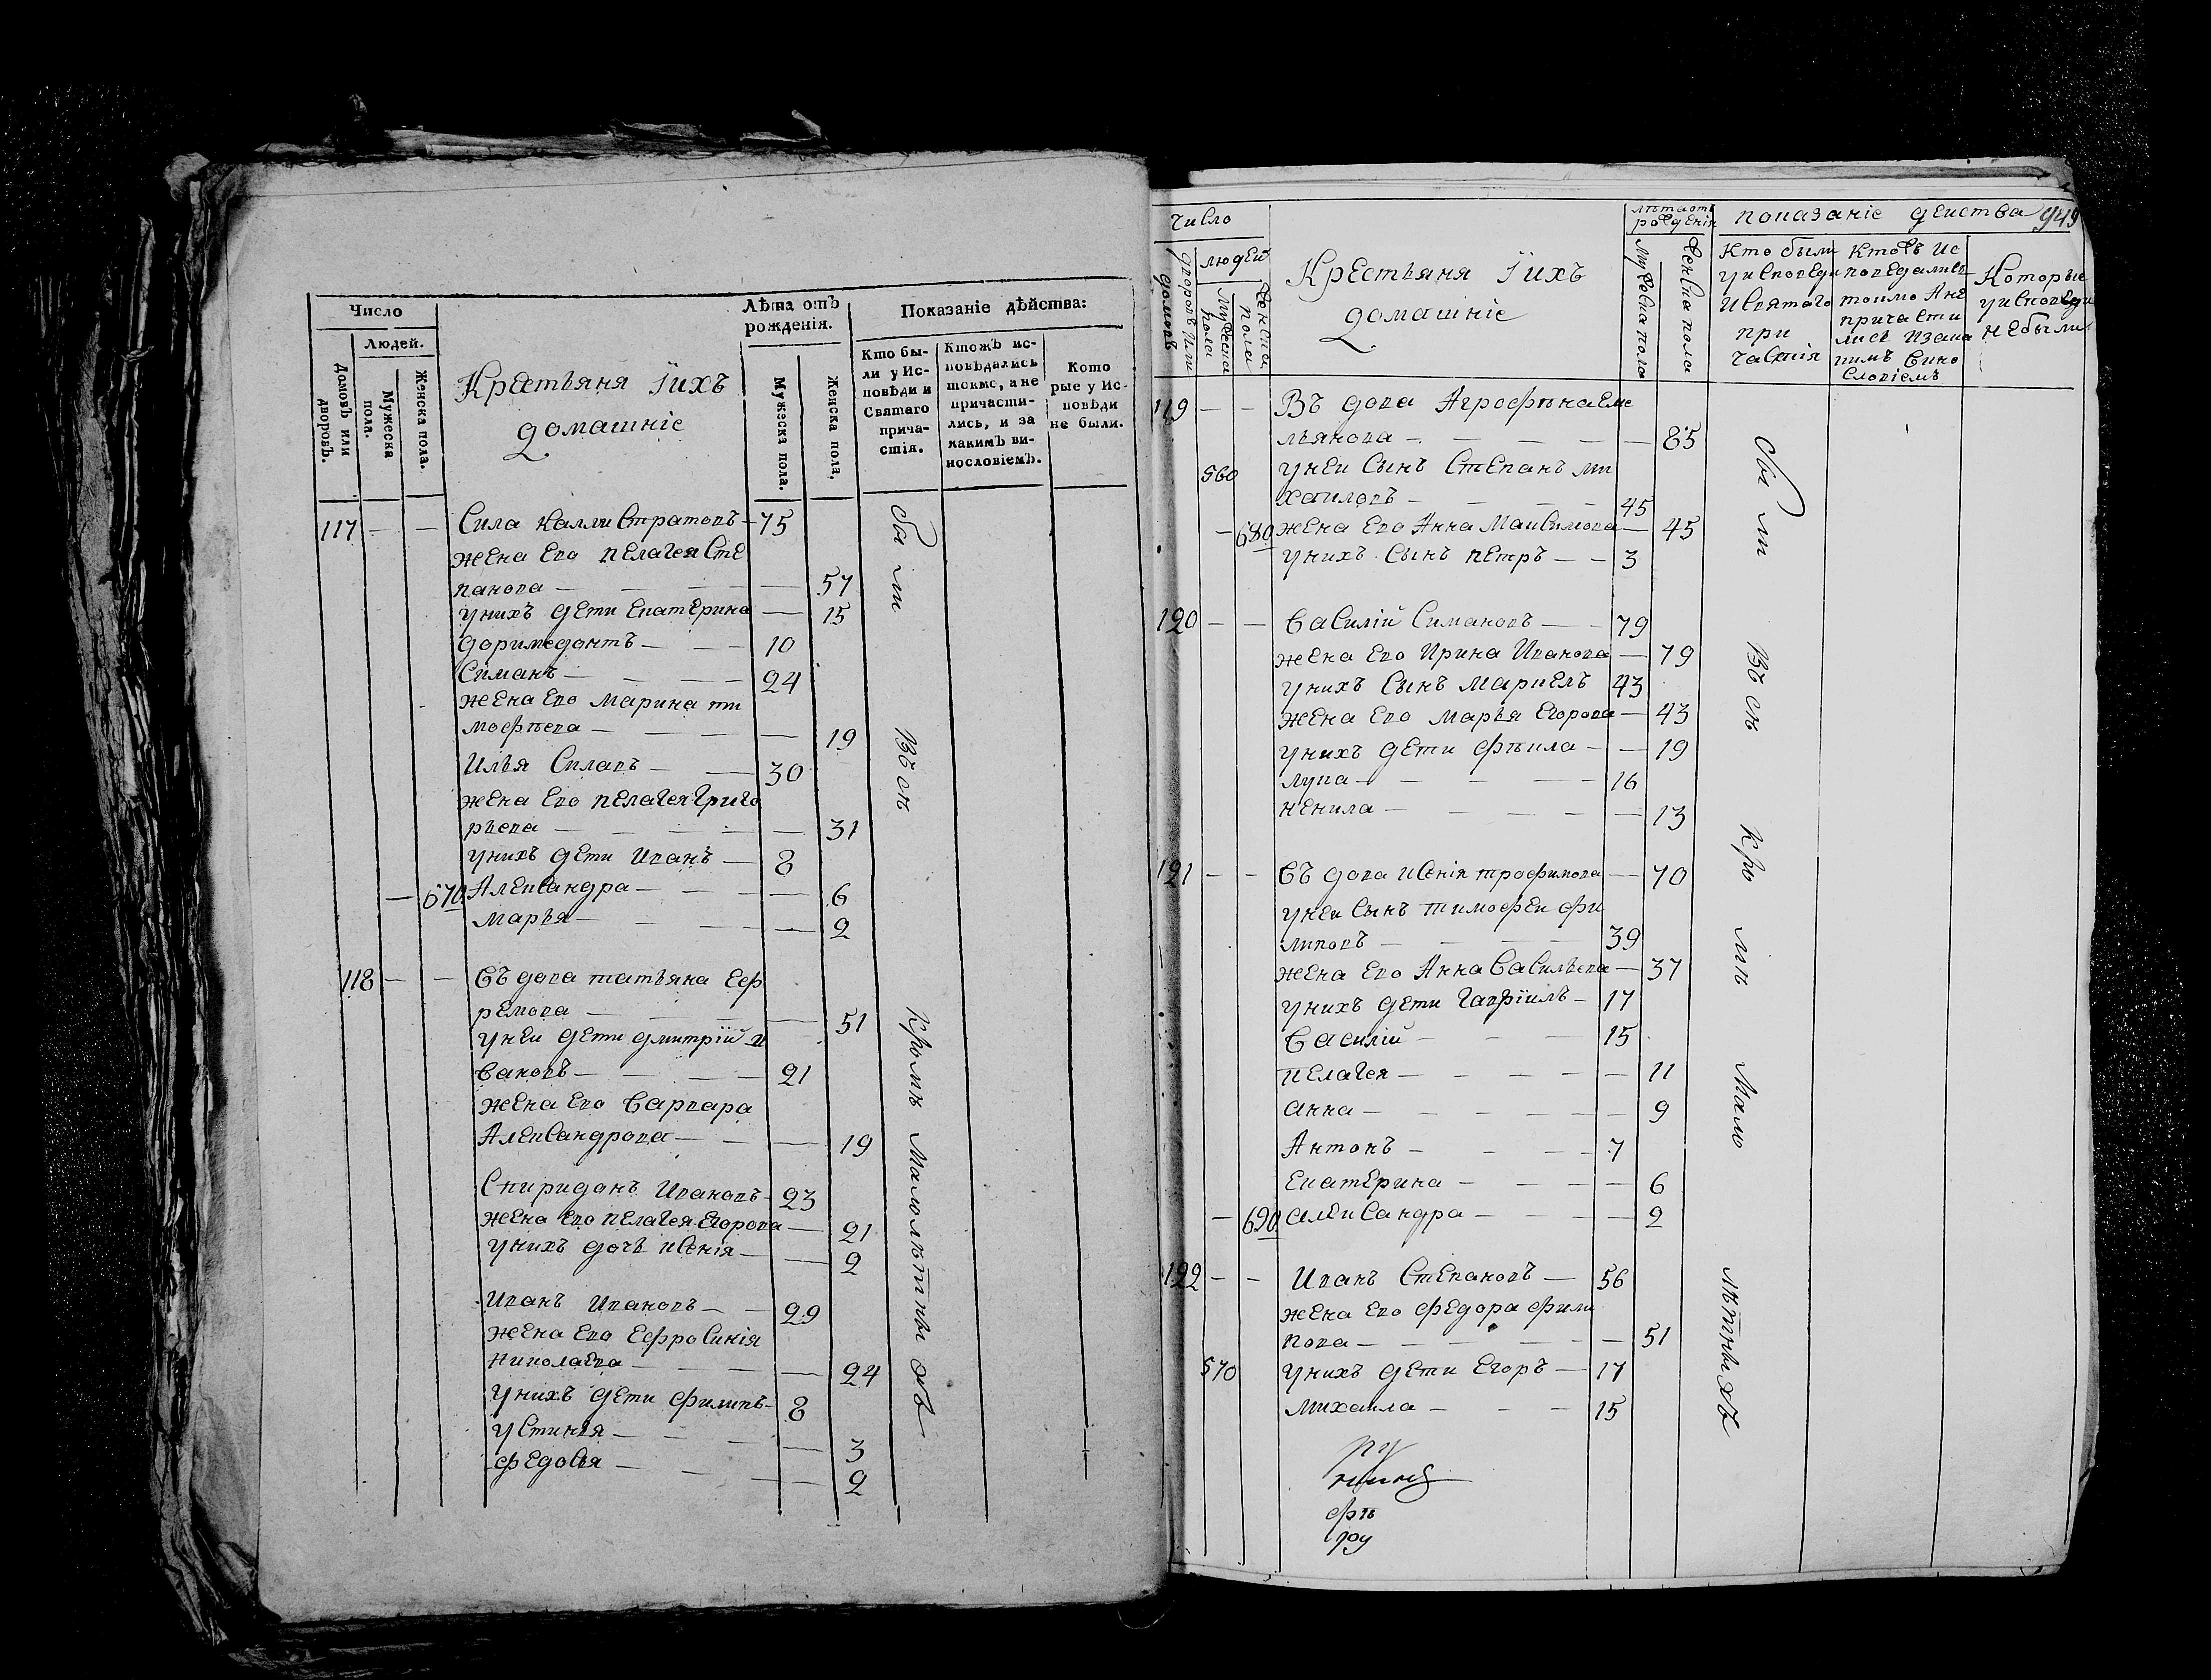 Число
Людей.
Домовъ или дворовъ.
Мужеска пола.
Женска пола.
Крестьяня Їихъ
домашніе
Лѣта отъ рожденія.
Мужеска пола.
Женска пола.
Показаніе дѣйства:
Кто бы-
ли у Ис-
повѣди и
Святаго
прича-
стія.
Ктожъ ис-
повѣдались
токмо, а не
причасти-
лись, и за
какимъ ви-
нословіемъ.
Кото
рые у Ис-
повѣди
не были.
117 — — Сила Каллистратовъ — 75
жена Его пелагея Сте
панова — 57
унихъ дети Екатерина — 15
доримедонтъ — 10
Симанъ — 24
жена Его марина ти
мофѣева — 19
Илья Силавъ — 30
жена Его пелагея Григо
рьева — 31
унихъ дети Иванъ — 8
— 670 Александра — 6
марья — 2
118 — — Въдова татьяна Еф
ремова — 51
унеи дети дмитрїй И
вановъ — 21
жена Его Варвара
Александрова — 19
Спиридонъ Ивановъ — 23
жена Его пелагея Егорова — 21
унихъ дочь Ксенія — 2
Иванъ Ивановъ — 29
жена Его Ефросинія
Николаева — 24
унихъ дети филипъ — 8
устинья — 3
федосья — 2
бы ли Всѣ Кромѣ Малолѣтныхъ
949
число
людей
дворовъ или домовъ
мужеска пола
женска пола
Крестьяня Їихъ
домашніе
лѣта отъ
рожденія
мужеска пола
женска пола
показаніе действа
Кто были
уисповеди
исвятаго
при
частія
Ктожъ Ис
поведались
токмо Ане
причасти
лись изака
кимъ вино
словіемъ
Которые
уисповеди
небыли
119 — — Въдова Агрофѣна Еме
льянова — 85
560 унеи Сынъ Степанъ ми
хаиловъ — 45
— 680 жена Его Анна Максимова — 45
унихъ Сынъ петръ — 3
120 — — Василій Симановъ — 79
жена Его Ирина Иванова — 79
унихъ Сынъ маркелъ 43
жена Его марья Егорова — 43
унихъ дети фѣкла — 19
лука — 16
ненила — 13
121 — — Въдова Ксенія трофимова — 70
унеи Сынъ тимофеи фи
липовъ — 39
жена Его Анна Васильева — 37
унихъ дети Гаврїилъ — 17
Василій — 15
пелагея — 11
анна — 9
Антонъ — 7
Екатерина — 6
— 690 александра — 2
122 — — Иванъ Степановъ — 56
жена Его федора фили
пова — 51
570 унихъ дети Егоръ — 17
михаила — 15
бы ли Всѣ Кро мѣ Мало лѣтныхъ